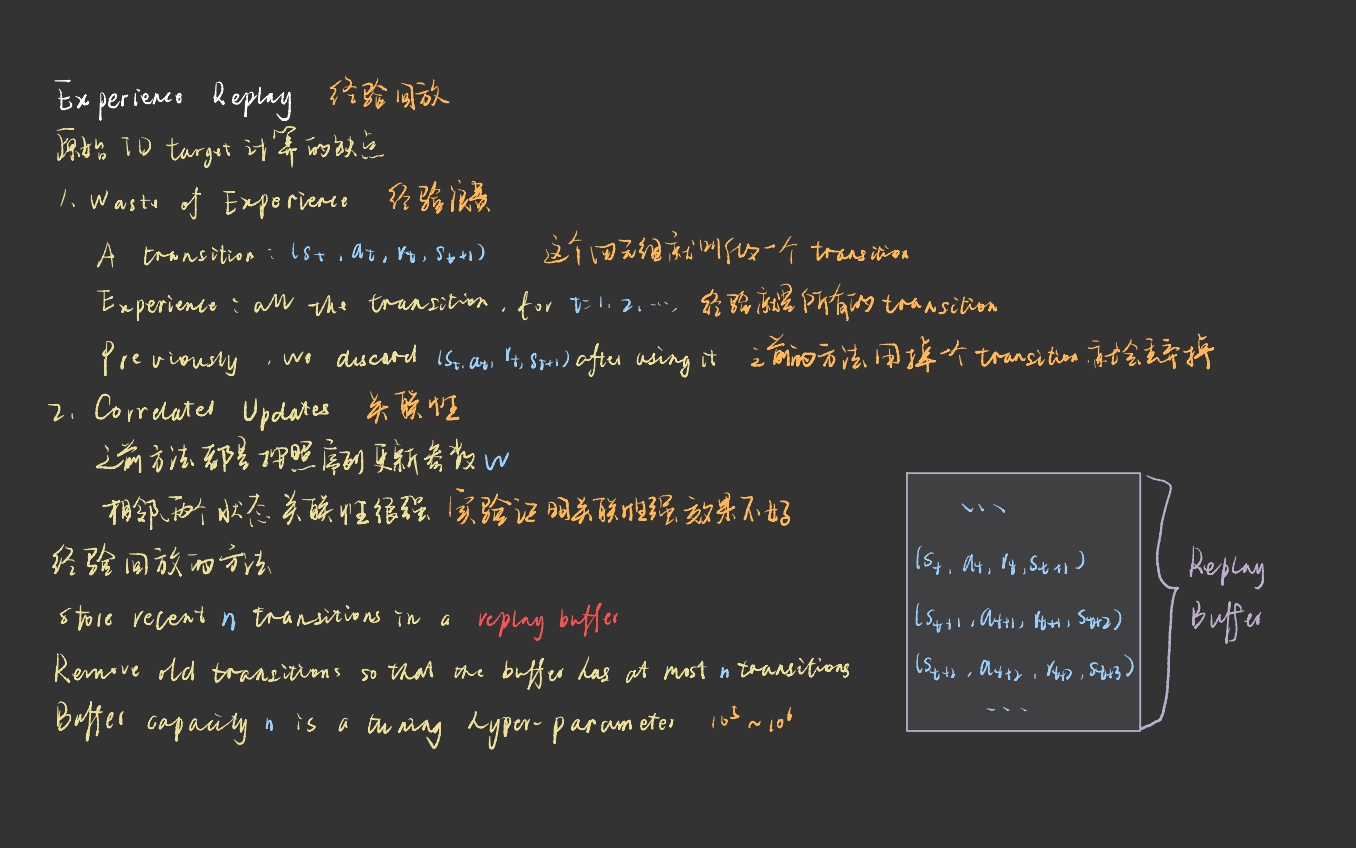 Experience Replay 经验回放
原始 TD target 计算的缺点
1. Waste of Experience 经验浪费
A transition: (sₜ, aₜ, rₜ, sₜ₊₁) 这个四元组就叫做一个 transition
Experience: all the transition, for t=1, 2, ..., 经验就是所有的 transition
Previously, we discard (sₜ, aₜ, rₜ, sₜ₊₁) after using it 之前的方法用掉一个 transition 就会丢弃掉
2. Correlated Updates 关联性
之前方法都是按照序列更新参数 w
相邻两个状态关联性很强 实验证明关联性强效果不好
经验回放的方法
Store recent n transitions in a replay buffer
Remove old transitions so that the buffer has at most n transitions
Buffer capacity n is a tuning hyper-parameter 10⁵ ~ 10⁶
...
(sₜ, aₜ, rₜ, sₜ₊₁)
(sₜ₊₁, aₜ₊₁, rₜ₊₁, sₜ₊₂)
(sₜ₊₂, aₜ₊₂, rₜ₊₂, sₜ₊₃)
...
Replay
Buffer